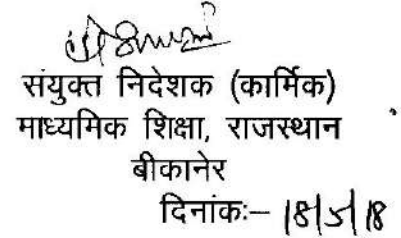 संयुक्त निदेशक (कार्मिक)
माध्यमिक शिक्षा, राजस्थान
बीकानेर
दिनांकः– 18/5/18